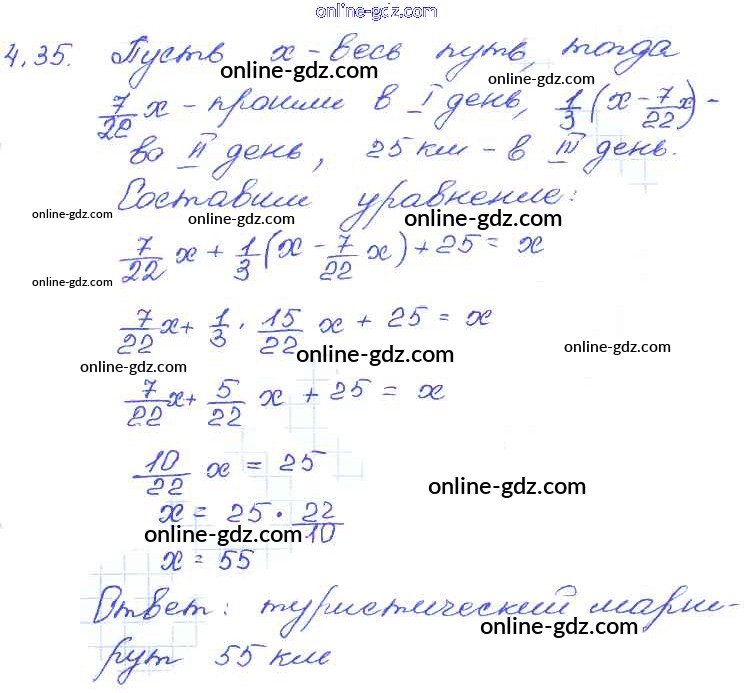 online-gdz.com
4.35. Пусть x - весь путь, тогда
online-gdz.com online-gdz.com
7/22 x - прошли в I день, 1/3 (x - 7/22 x) -
во II день, 25 км - в III день.
Составим уравнение:
online-gdz.com online-gdz.com online-gdz.com
7/22 x + 1/3 (x - 7/22 x) + 25 = x
online-gdz.com
7/22 x + 1/3 · 15/22 x + 25 = x
online-gdz.com online-gdz.com
online-gdz.com
7/22 x + 5/22 x + 25 = x
10/22 x = 25
online-gdz.com
x = 25 · 22/10
online-gdz.com
x = 55
Ответ: туристический марш-
online-gdz.com
рут 55 км